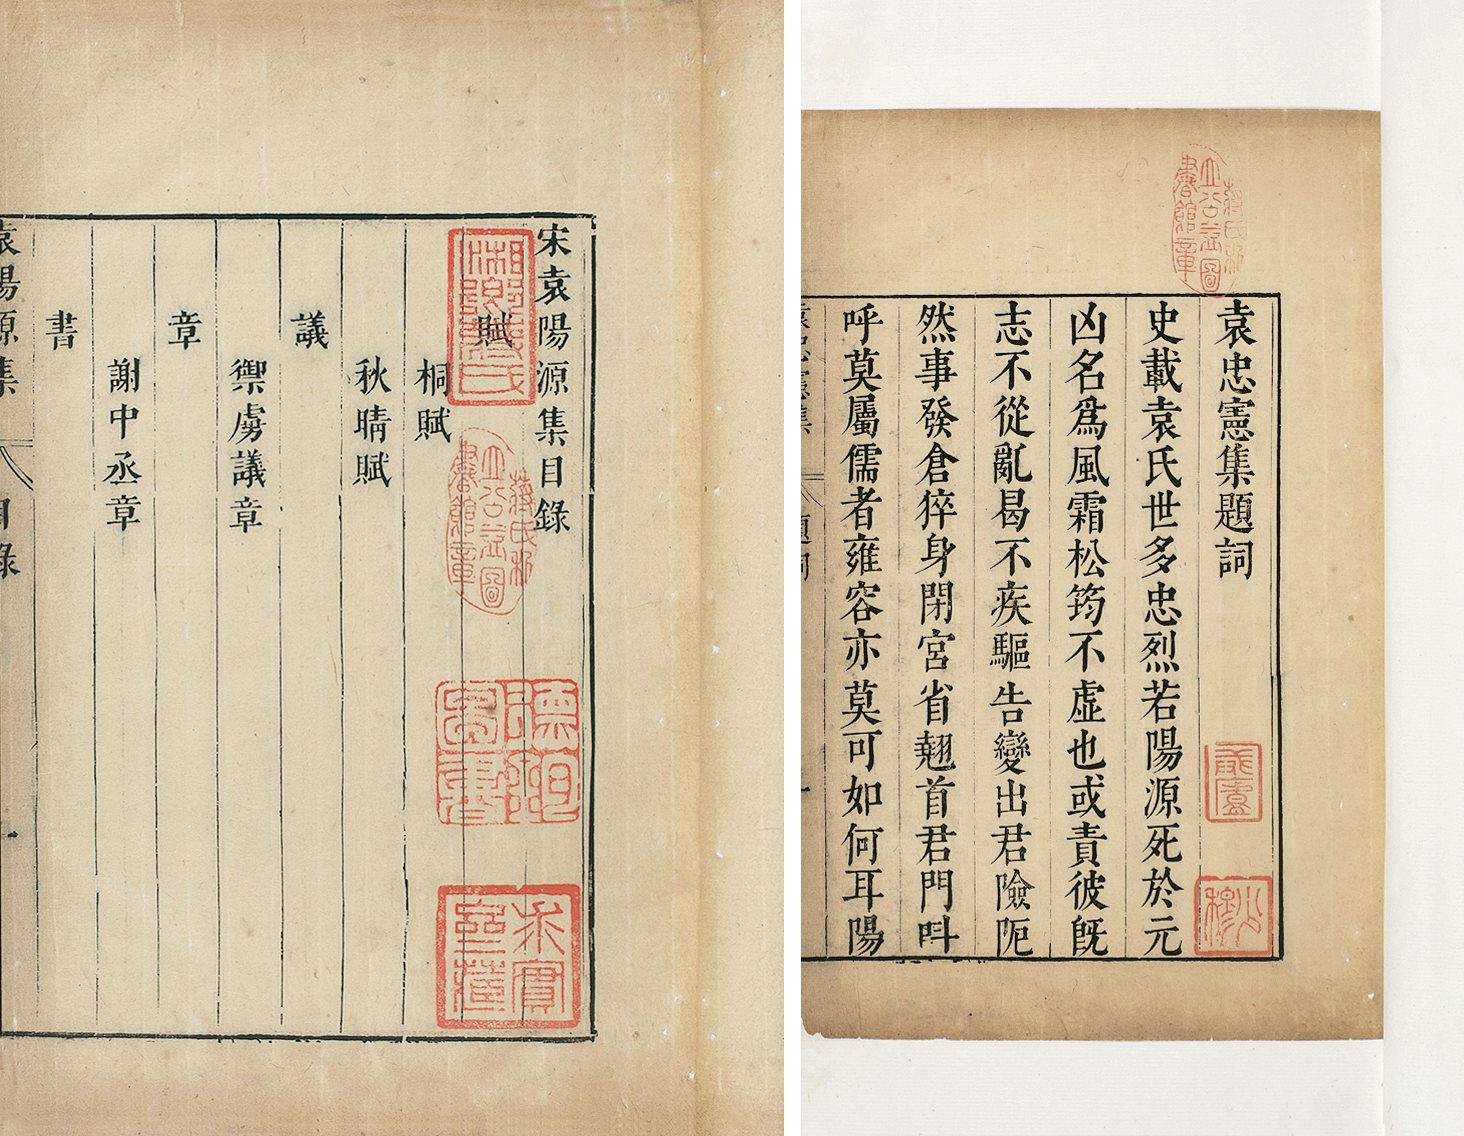 宋袁陽源集目錄
賦
桐賦
秋晴賦
議
禦虜議章
章
謝中丞章
書
袁陽源集
目錄
袁忠憲集題詞
史載袁氏世多忠烈若陽源死於元
凶名爲風霜松筠不虛也或責彼旣
志不從亂曷不疾驅告變出君險阨
然事發倉猝身閉宮省翹首君門呌
呼莫屬儒者雍容亦莫可如何耳陽
袁忠憲集
題詞
一
蔣氏祕
公益圖
書館章